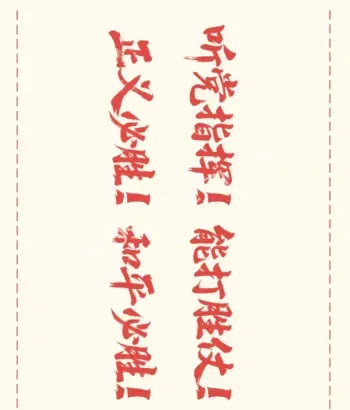 听党指挥！能打胜仗！
正义必胜！和平必胜！